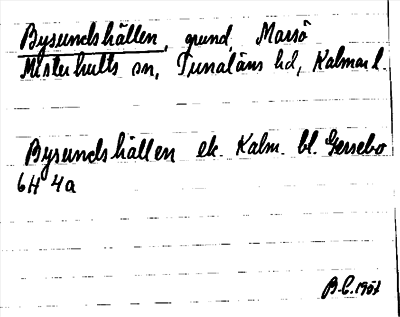 Bysundshällen, grund, Marsö
Misterhults sn, Tunaläns hd, Kalmar l.
Bysundshällen ek. Kalm. bl. Gersebo
6H 4a
B.C. 1957